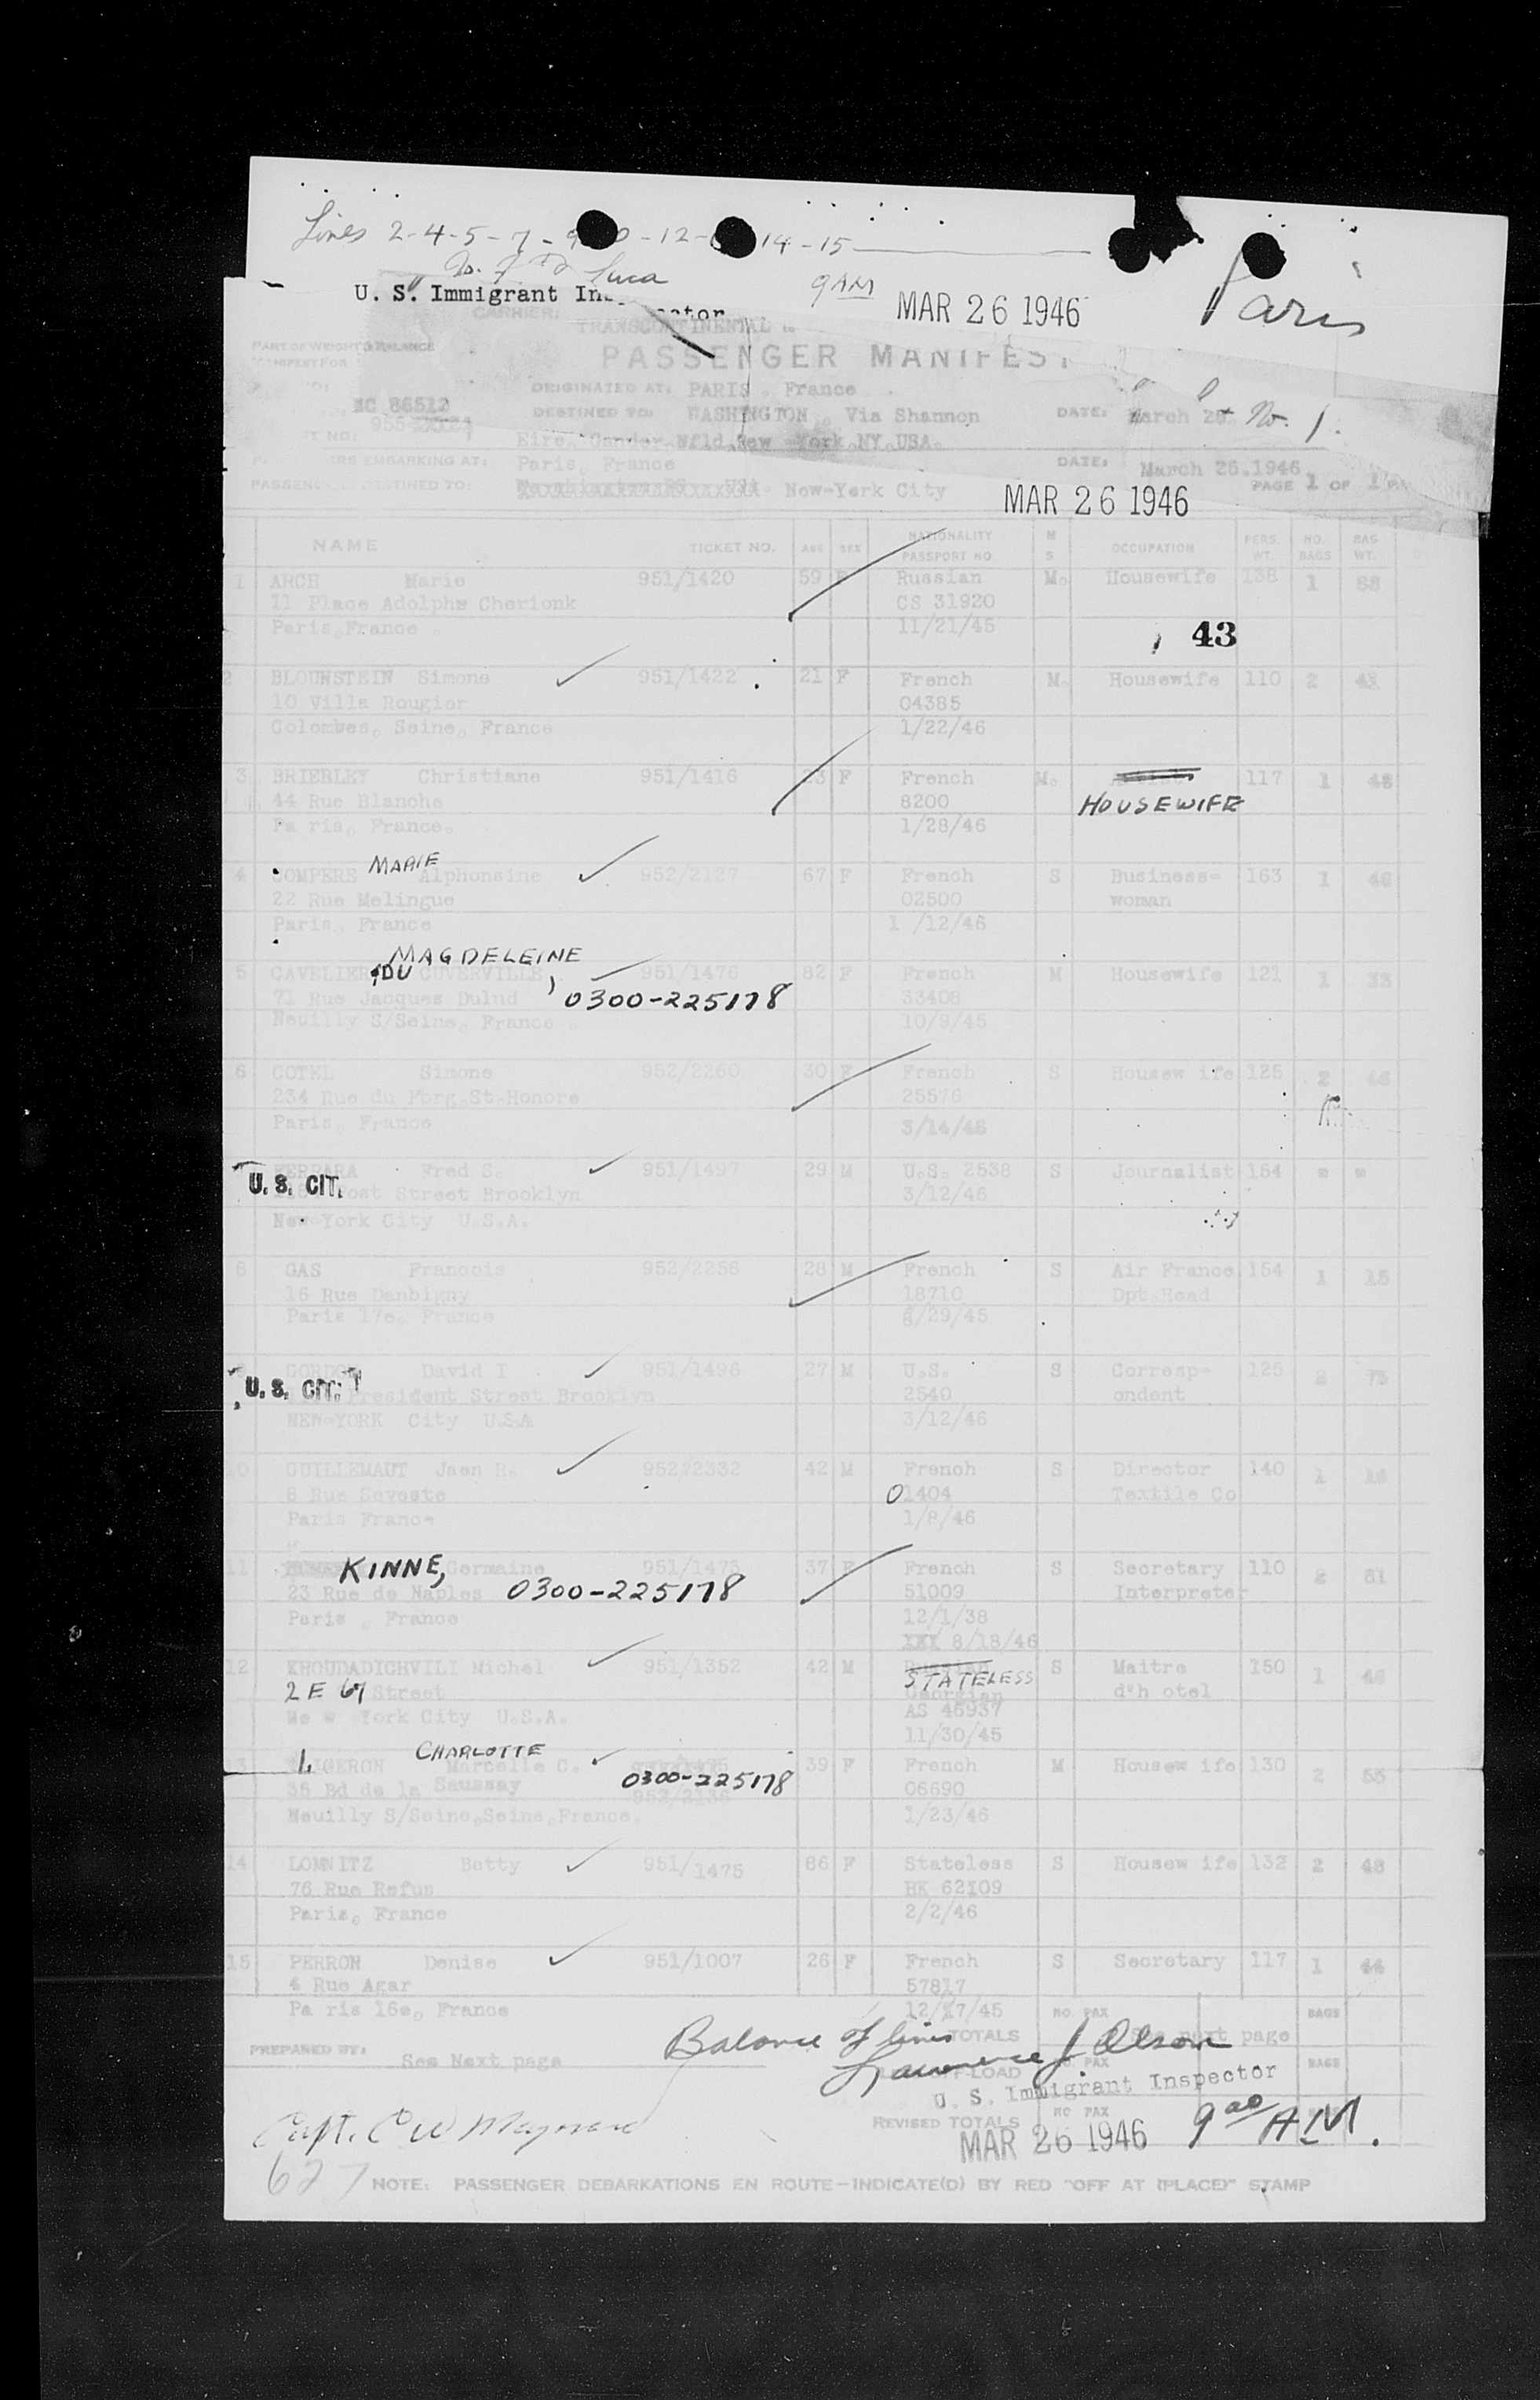 Lines 2-4-5-7-9 -12- 14-15
U. S. Immigrant
9 AM
MAR 26 1946
Paris
CARRIER: TRANSCONTINENTAL &
PART OF WEIGHT & BALANCE
MANIFEST FOR
PASSENGER MANIFEST
ORIGINATED AT: PARIS, France
NC 86512
DESTINED TO: WASHINGTON, Via Shannon
DATE: March No. 1.
Eire, Gander Nfld, New York, NY, USA.
EMBARKING AT: Paris, France
DATE: March 26.1946
DESTINED TO: New-York City
PAGE 1 OF 1
MAR 26 1946
NAME TICKET NO. AGE SEX NATIONALITY PASSPORT NO M S OCCUPATION PERS. WT. NO. BAGS BAG WT.
1 ARCH Marie 951/1420 59 F Russian M. Housewife 138 1
11 Place Adolphe Cherionk CS 31920
Paris, France 11/21/45
43
2 BLOUNSTEIN Simone 951/1422 21 F French M. Housewife 110 2
10 Villa Rougier 04385
Colombes, Seine, France 1/22/46
3 BRIERLEY Christiane 951/1416 23 F French M. 117 1 48
44 Rue Blanche 8200 HOUSEWIFE
Pa ris, France. 1/28/46
MARIE
4 COMPERE Alphonsine 952/2127 67 F French S Business- 163 1 46
22 Rue Melingue 02500 woman
Paris, France 1 /12/46
MAGDELEINE
5 CAVELIER DU CUVERVILLE 951/1476 82 F French M Housewife 121 1 33
71 Rue Jacques Dulud 0300-225178 33408
Neuilly S/Seine, France 10/9/45
6 COTEL Simone 952/2260 30 F French S Housew ife 125 2
234 Rue du Fbrg.St-Honore 25576
Paris, France 3/14/46
FERRARA Fred S. 951/1497 29 M U.S. 2538 S Journalist 164
U. S. CIT. Post Street Brooklyn 3/12/46
New-York City U.S.A.
8 GAS Francois 952/2256 28 M French S Air France 154 1 15
16 Rue Danbigny 18710 Dpt.Head
Paris 17e. France /29/45
GORDON David I 951/1496 27 M U.S. S Corresp- 125
U. S. CIT. President Street Brooklyn 2540 ondent
NEW-YORK City U.S.A 3/12/46
10 GUILLEMAUT Jaen R. 952/2332 42 M French S Director 140 1
8 Rue Saveste 01404 Textile Co
Paris France 1/8/46
11 KINNE, Germaine 951/1473 37 F French S Secretary 110 2 61
23 Rue de Naples 0300-225178 51009 Interpreter
Paris, France 12/1/38
XXX 8/18/46
12 KHOUDADICHVILI Michel 951/1352 42 M S Maitre 150 1 46
2 E 67 Street STATELESS Georgian d'h otel
Ne w York City U.S.A. AS 46937
11/30/45
CHARLOTTE
13 L GERON Marcelle C. 39 F French M Housew ife 130 2 55
35 Bd de la Saussay 0300-225178 06690
Neuilly S/Seine,Seine,France. 1/23/46
14 LOMNITZ Betty 951/1475 66 F Stateless S Housew ife 132 2 48
76 Rue Refus HK 62109
Paris, France 2/2/46
15 PERRON Denise 951/1007 26 F French S Secretary 117 1 44
4 Rue Agar 57817
Pa ris 16e, France 12/17/45
NO. PAX BAGS
Balance of lines TOTALS See next page
PREPARED BY: See Next page
Lawrence J Olson
OFF-LOAD PAX BAGS
U. S. Immigrant Inspector
REVISED TOTALS NO PAX
MAR 26 1946 9 00 A.M.
Capt. C W Maynard
627
NOTE: PASSENGER DEBARKATIONS EN ROUTE—INDICATE(D) BY RED "OFF AT (PLACE)" STAMP